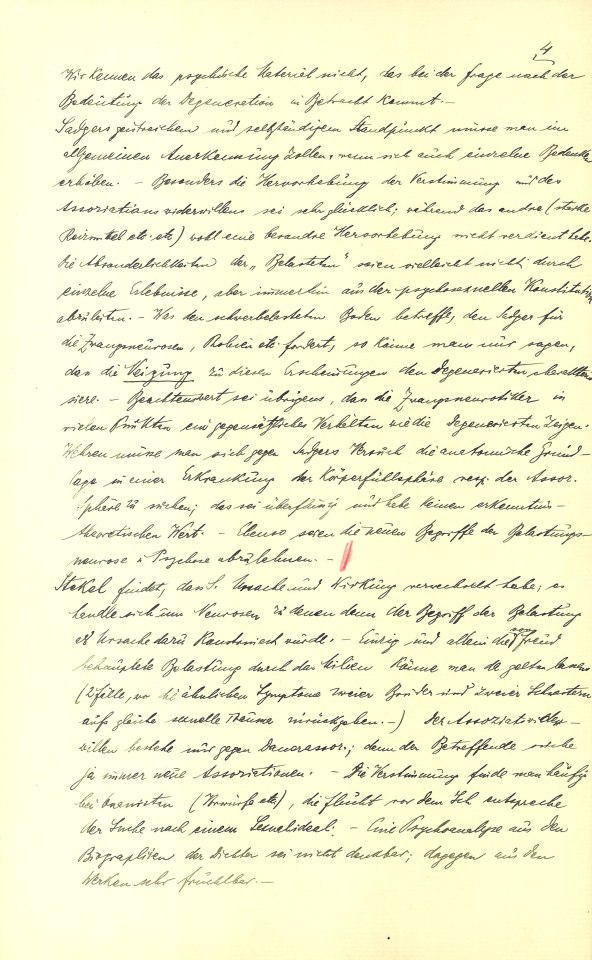 4
Wir kennen das psychische Material nicht, das bei der Frage nach der
Bedeutung der Degeneration in Betracht kommt. –
Sadgers geistreichem und selbständigem Standpunkt müsse man im
allgemeinen Anerkennung zollen, wenn sich auch einzelne Bedenken
erhöben. – Besonders die Hervorhebung der Verstimmung und des
Assoziationswiderwillens sei sehr glücklich; während das andre (starke
Reizmittel etc. etc) wohl eine besondre Hervorhebung nicht verdient habe.
Die Absonderlichkeiten der „Belasteten" seien vielleicht nicht durch
einzelne Erlebnisse, aber immerhin aus der psychosexuellen Konstitution
abzuleiten. – Was den schwerbelasteten Boden betreffe, den Sadger für
die Zwangsneurosen, Phobien etc. fordert, so könne man nur sagen,
das die Neigung zu diesen Erscheinungen den Degenerierten charakteri-
siere. – Beachtenswert sei übrigens, das die Zwangsneurotiker in
vielen Punkten ein gegensätzliches Verhalten wie die Degenerierten zeigen.
Wehren müsse man sich gegen Sadgers Versuch die anatomische Grund-
lage in einer Erkrankung der Körperfühlsphäre resp. der Assoz.
Sphäre zu suchen; das sei überflüssig und habe keinen erkenntnis-
theoretischen Wert. – Ebenso seien die neuen Begriffe der Belastungs-
neurose u Psychose abzulehnen. –
Stekel findet, das S. Ursache und Wirkung verwechselt habe; es
handle sich um Neurosen zu denen dann der Begriff der Belastung
als Ursache dazu konstruiert würde. – Einzig und allein die von Freud
behauptete Belastung durch das Milieu könne man da gelten lassen
(2 Fälle, wo die ähnlichen Symptome zweier Brüder und zweier Schwestern
aufs gleiche sexuelle Trauma zurückgehen. –) Der Assoziatwider-
willen bestehe nur gegen Dauerassoz.; denn der Betreffende suche
ja immer neue Assoziationen. – Die Verstimmung finde man häufig
bei Onanisten (Vorwürfe etc), die Flucht vor dem Ich entspreche
der Suche nach einem Sexualideal. – Eine Psychoanalyse aus den
Biographien der Dichter sei nicht denkbar; dagegen aus den
Werken sehr fruchtbar. –